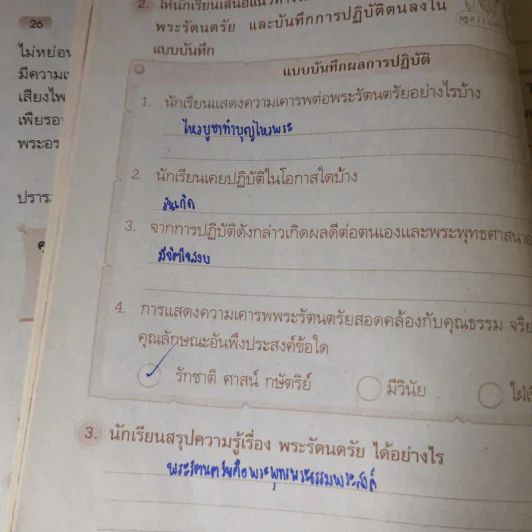 26
ไม่หย่อน
มีความ
เสียงไพ
เพียรอ
พระอร
ปราร
2. ให้นักเรียนเสนอแนวทาง
พระรัตนตรัย และบันทึกการปฏิบัติตนลงใน
แบบบันทึก
แบบบันทึกผลการปฏิบัติ
1. นักเรียนแสดงความเคารพต่อพระรัตนตรัยอย่างไรบ้าง
ไหว้บูชาทำบุญไหว้พระ
2. นักเรียนเคยปฏิบัติในโอกาสใดบ้าง
วันเกิด
3. จากการปฏิบัติดังกล่าวเกิดผลดีต่อตนเองและพระพุทธศาสนาอ
มีจิตใจสงบ
4. การแสดงความเคารพพระรัตนตรัยสอดคล้องกับคุณธรรม จริย
คุณลักษณะอันพึงประสงค์ข้อใด
รักชาติ ศาสน์ กษัตริย์ มีวินัย ใฝ่เ
3. นักเรียนสรุปความรู้เรื่อง พระรัตนตรัย ได้อย่างไร
พระรัตนตรัยคือพระพุทธพระธรรมพระสงฆ์